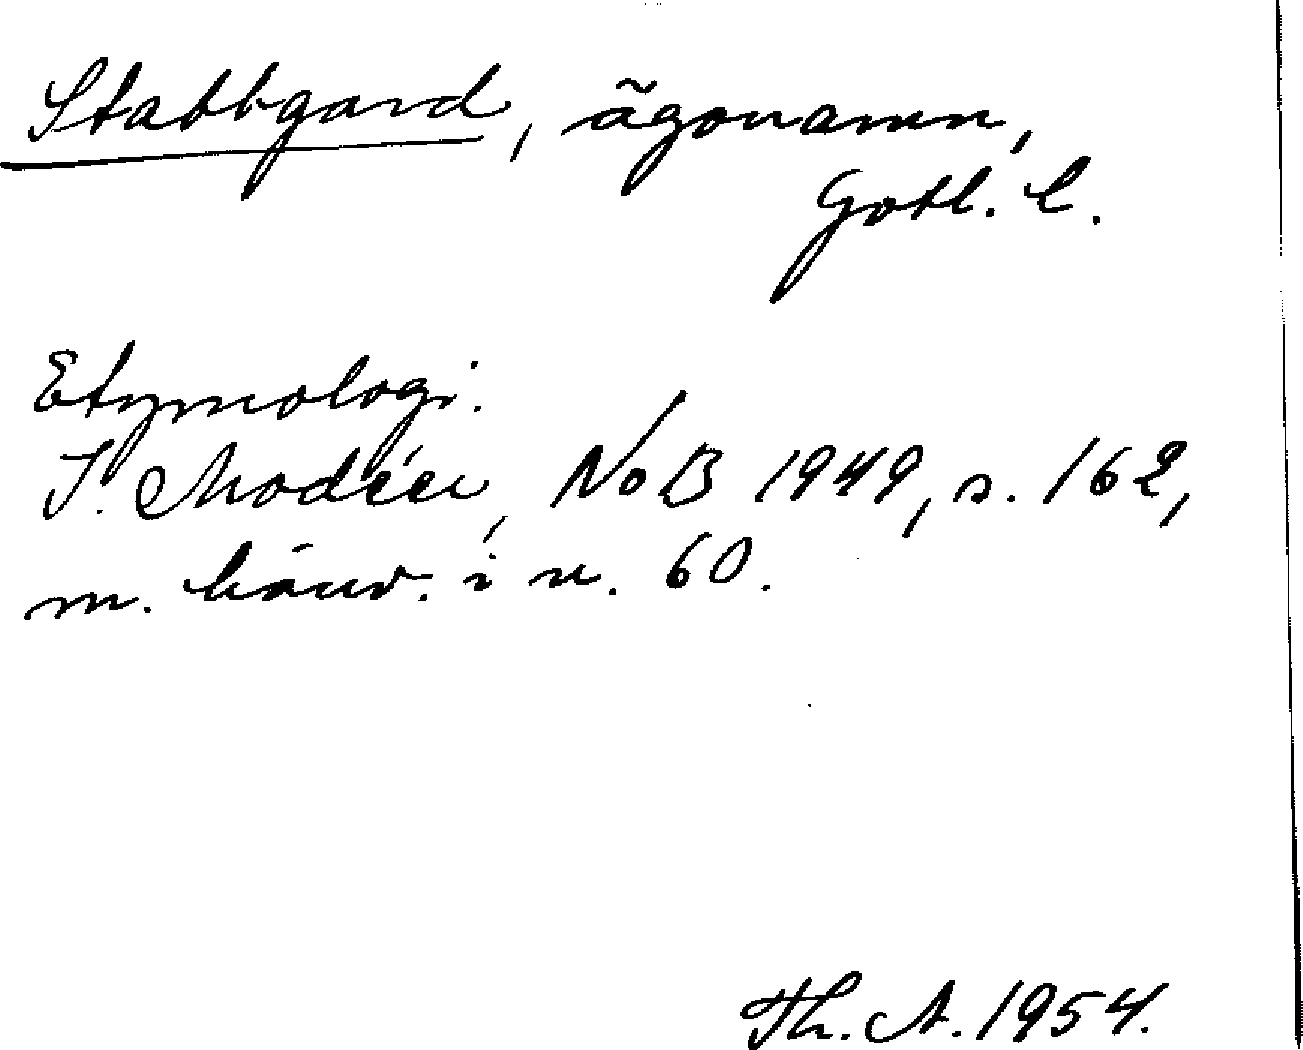 Stabbgard, ägonamn,
Gotl. l.
Etymologi.
I. Modéer, NoB 1949, s. 162,
m. hänv. i n. 60.
Th. A. 1954.